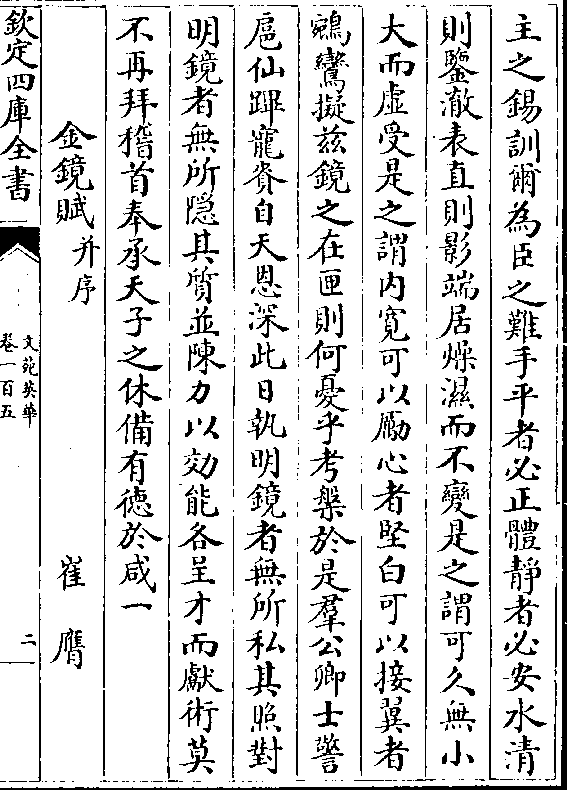 主之錫訓爾為臣之難手平者必正體靜者必安水清
則鑒澈表直則影端居燥濕而不變是之謂可久無小
大而虛受是之謂内寛可以勵心者堅白可以接翼者
鵷鸞擬兹鏡之在匣則何憂乎考槃於是羣公卿士警
扈仙蹕寵賚自天恩深此日執明鏡者無所私其照對
明鏡者無所隠其質並陳力以効能各呈才而獻術莫
不再拜稽首奉承天子之休備有德於咸一
金鏡賦并序 崔膺
欽定四庫全書
文苑英華
卷一百五
二